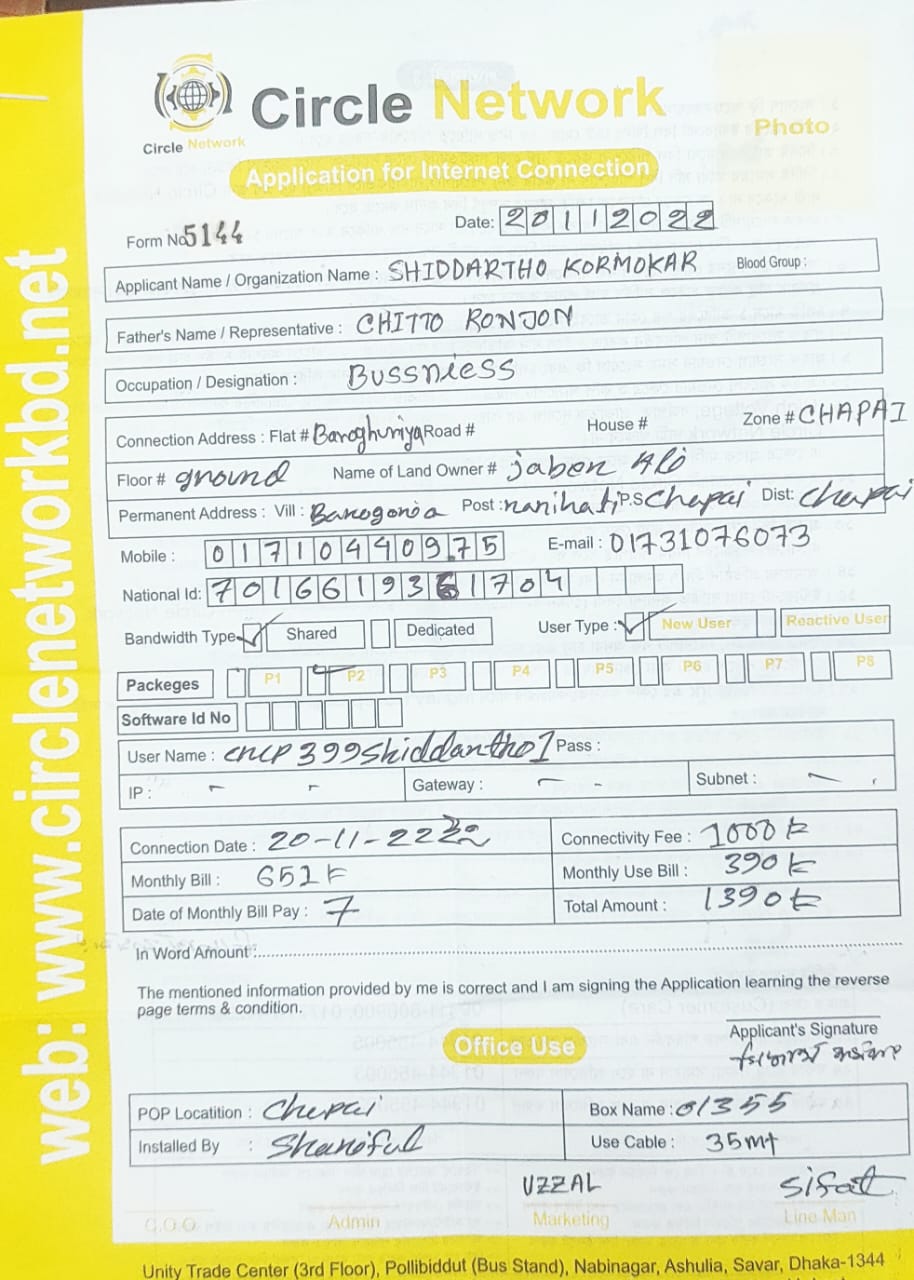 Circle Network
Circle Network
Photo
Application for Internet Connection
Form No 5144
Date: 20112022
Applicant Name / Organization Name : SHIDDARTHO KORMOKAR Blood Group :
Father's Name / Representative : CHITTO RONJON
Occupation / Designation : Bussniess
Connection Address : Flat # Baroghuriya Road # House # Zone # CHAPAI
Floor # ground Name of Land Owner # jaber Ali
Permanent Address : Vill : Post : P.S Chapai Dist: Chapai
Mobile : 01710440975 E-mail : 01731076073
National Id: 7016619361704
Bandwidth Type Shared Dedicated User Type : New User Reactive User
Packeges P1 P2 P3 P4 P5 P6 P7 P8
Software Id No
User Name : cncp399shiddartho1 Pass :
IP : - - Gateway : - - Subnet : -
Connection Date : 20-11-22 Connectivity Fee : 1000 tk
Monthly Bill : 651 tk Monthly Use Bill : 390 tk
Date of Monthly Bill Pay : 7 Total Amount : 1390 tk
In Word Amount :
The mentioned information provided by me is correct and I am signing the Application learning the reverse
page terms & condition.
Applicant's Signature
Office Use
POP Locatition : Chapai Box Name : 01355
Installed By : Shariful Use Cable : 35mt
UZZAL Sifat
C.O.O Admin Marketing Line Man
Unity Trade Center (3rd Floor), Pollibiddut (Bus Stand), Nabinagar, Ashulia, Savar, Dhaka-1344
web: www.circlenetworkbd.net